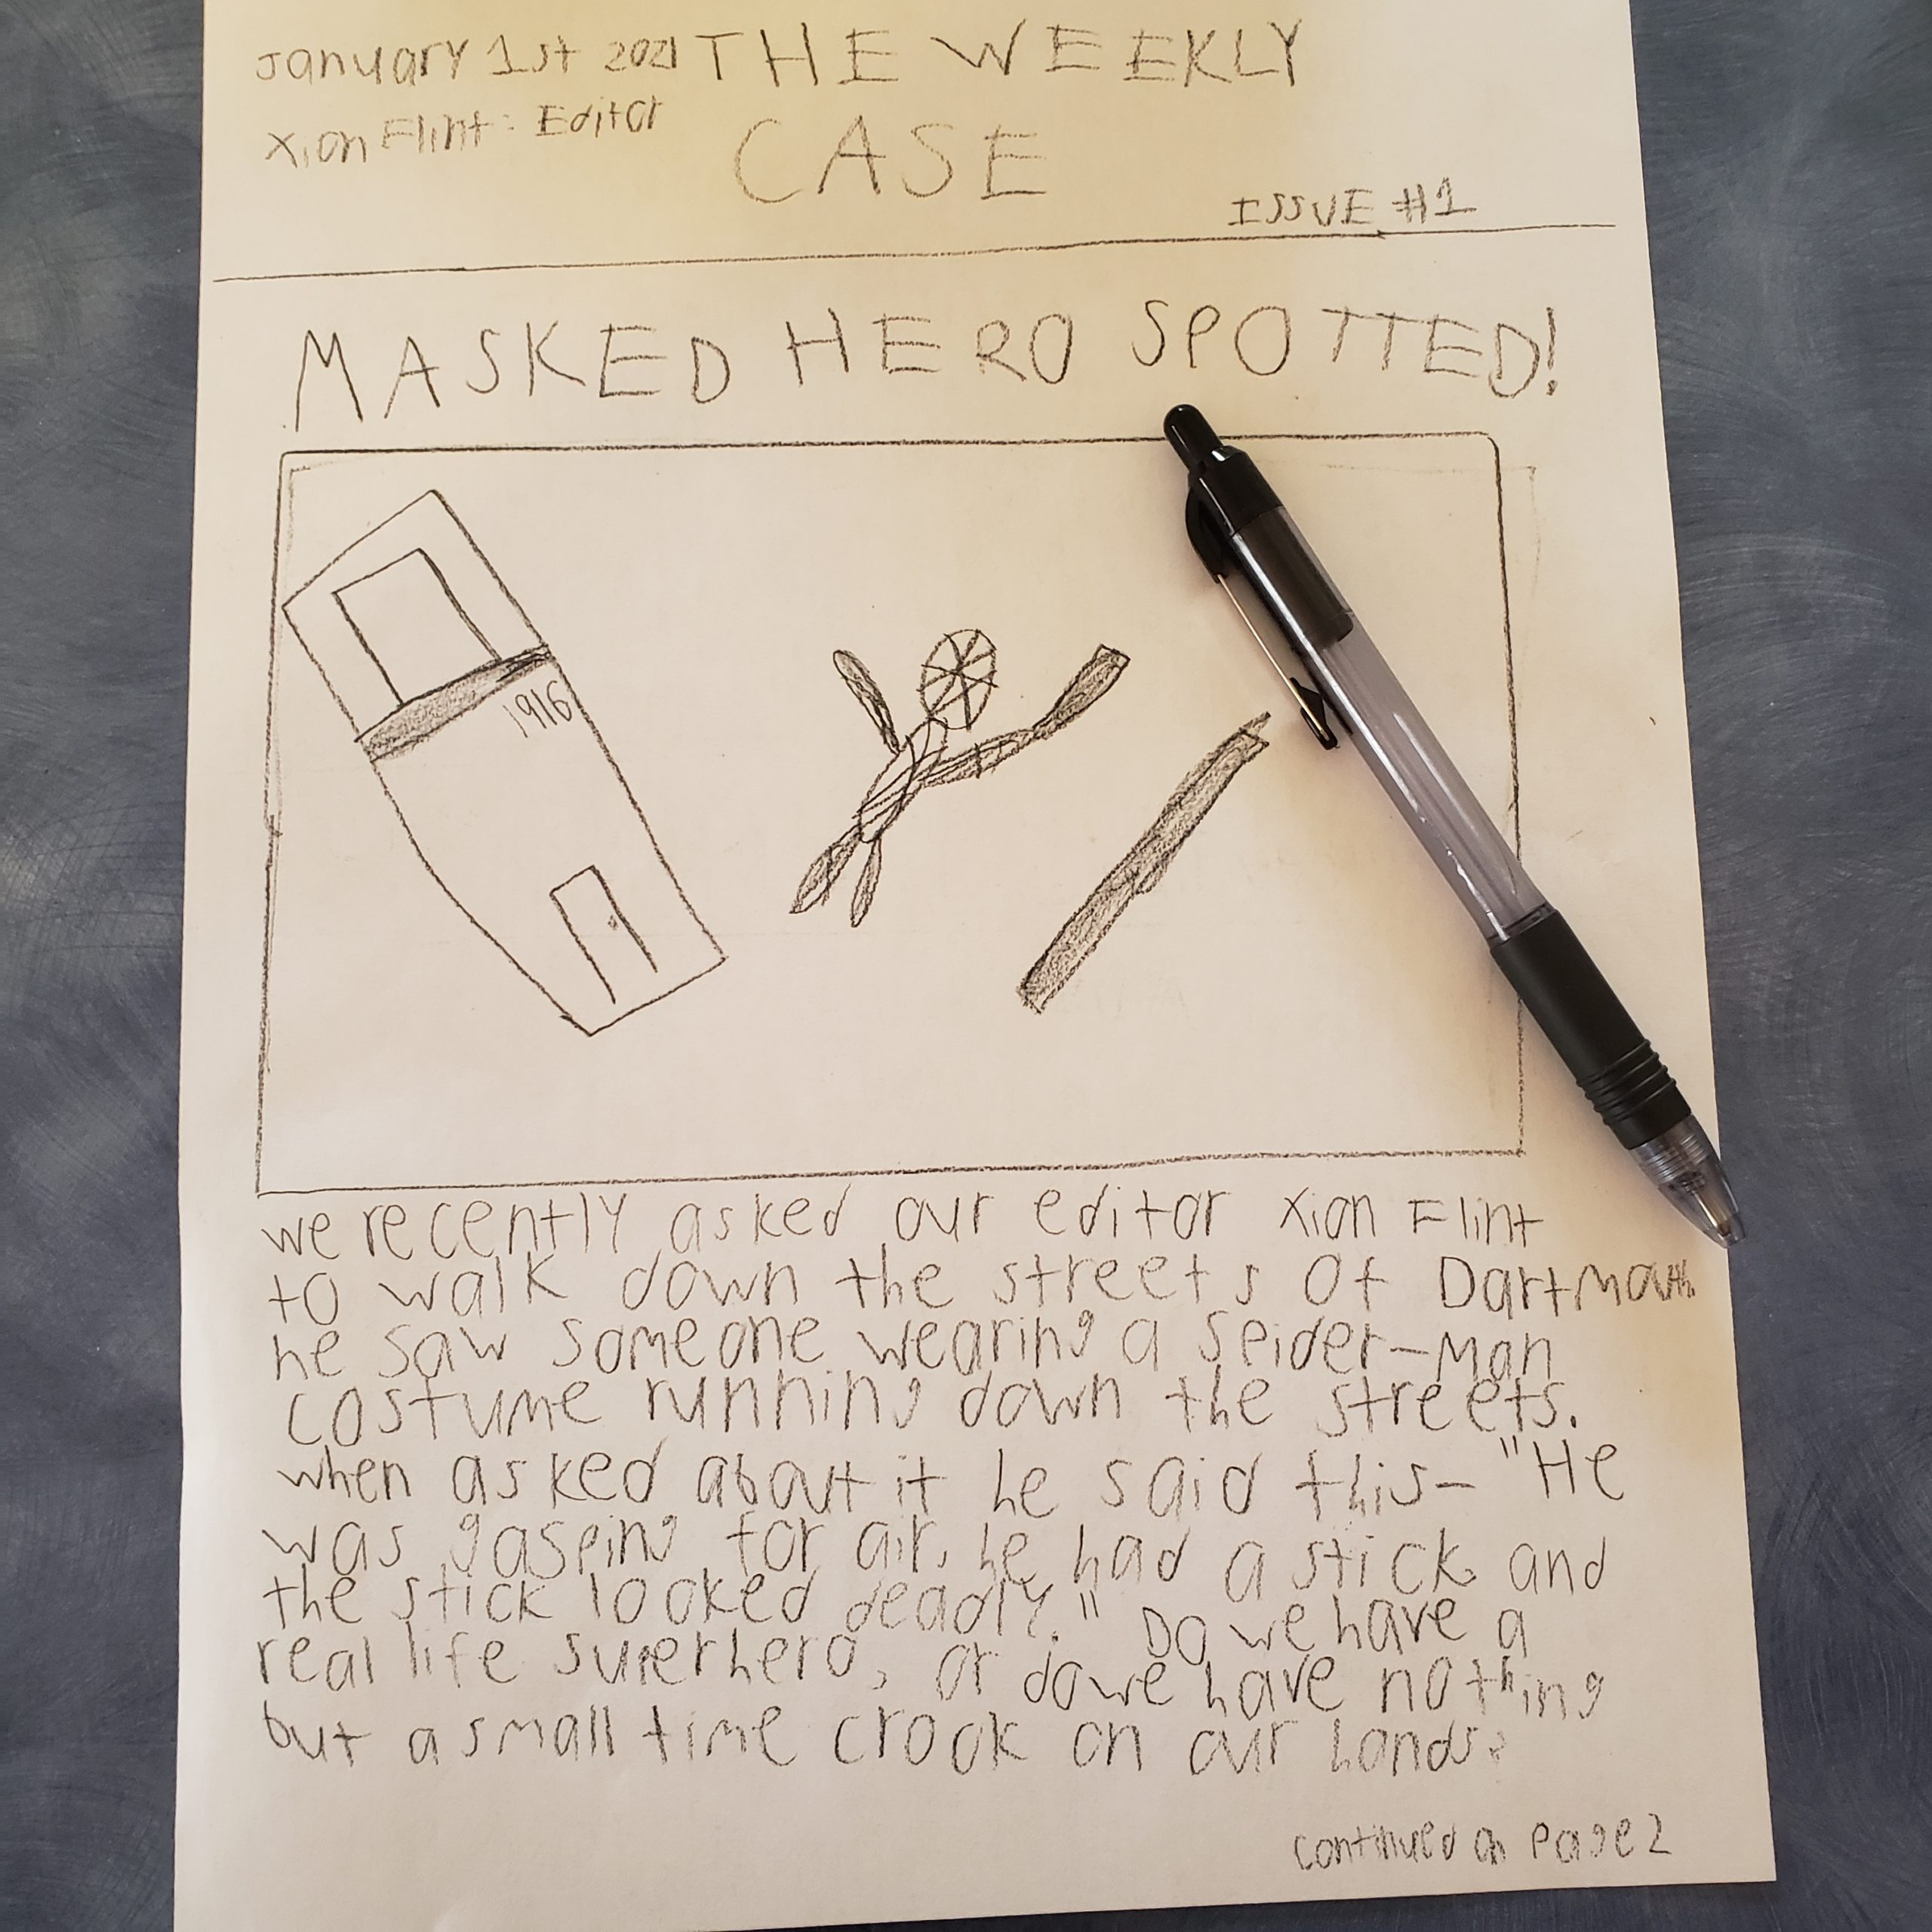 January 1st 2021 THE WEEKLY
Xion Flint: Editor
CASE
ISSUE #1
MASKED HERO SPOTTED!
1916
we recently asked our editor Xion Flint
to walk down the streets of Dartmouth
he saw someone wearing a Spider-Man
costume running down the streets.
when asked about it he said this- "He
was gasping for air, he had a stick and
the stick looked deadly." Do we have a
real life superhero, or do we have nothing
but a small time crook on our hands?
continued on page 2